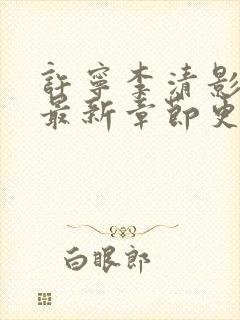 許寧李清影
最新章節史
白眼郎